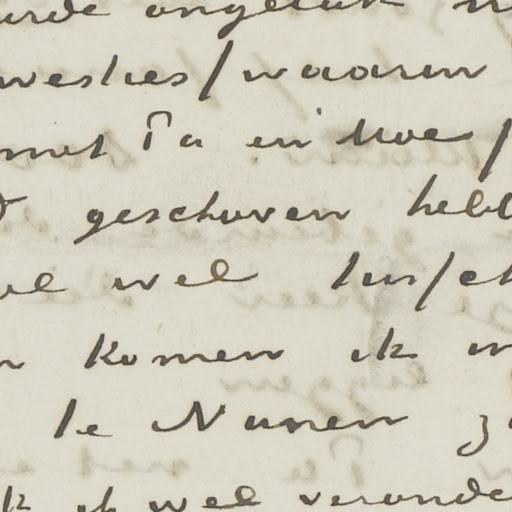 ongeluk
westies/waarin
met Pa en Moe/
geschoven hebb
wel tussch
komen ik
te Nunen z
k ik wel verande